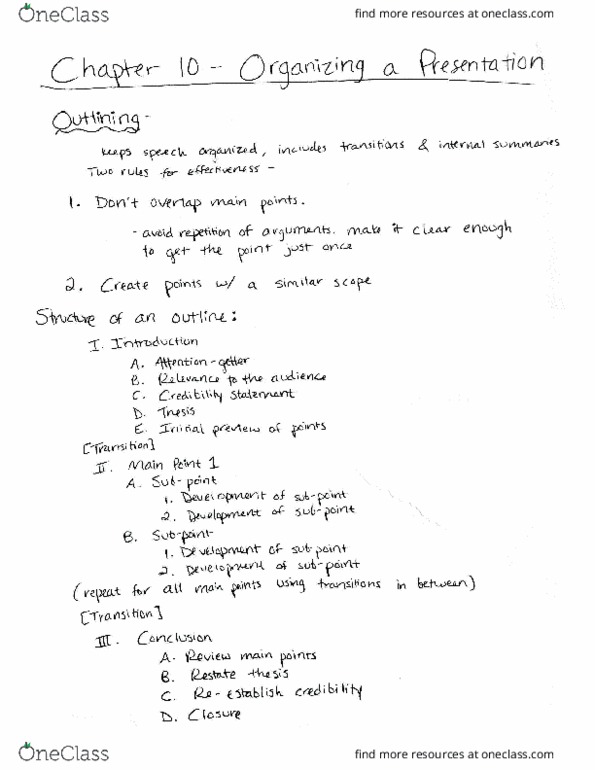 OneClass
find more resources at oneclass.com
Chapter 10 - Organizing a Presentation
Outlining -
keeps speech organized, includes transitions & internal summaries
Two rules for effectiveness -
1. Don't overlap main points.
- avoid repetition of arguments. make it clear enough
to get the point just once
2. Create points w/ a similar scope
Structure of an outline:
I. Introduction
A. Attention-getter
B. Relevance to the audience
C. Credibility statement
D. Thesis
E. Initial preview of points
[Transition]
II. Main Point 1
A. Sub-point
1. Development of sub-point
2. Development of sub-point
B. Sub-point
1. Development of sub-point
2. Development of sub-point
(repeat for all main points using transitions in between)
[Transition]
III. Conclusion
A. Review main points
B. Restate thesis
C. Re-establish credibility
D. Closure
OneClass
find more resources at oneclass.com